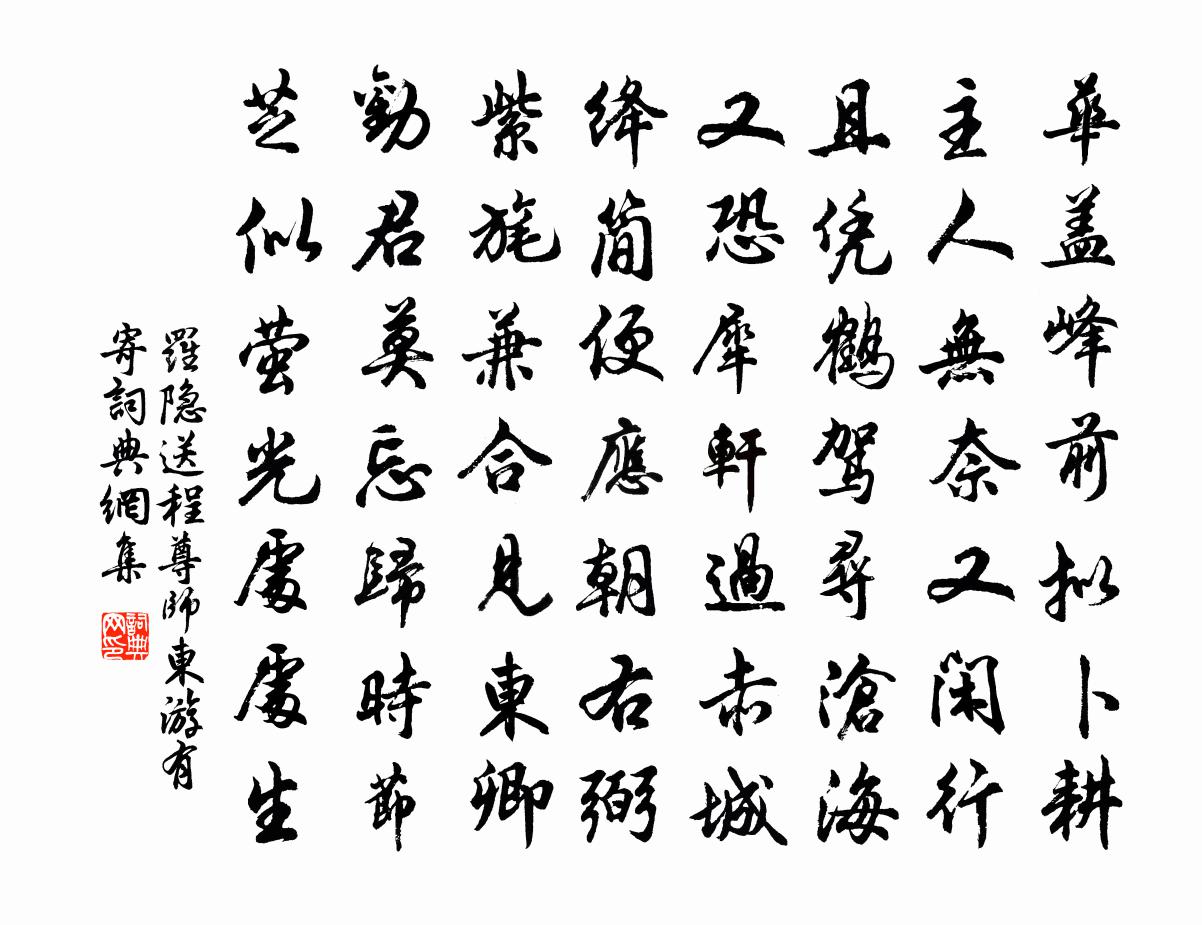 華盖峰前拟卜耕
主人無奈又閑行
且凭鶴駕尋滄海
又恐犀軒過赤城
绛簡便應朝右弼
紫旄兼合見東卿
勸君莫忘歸時節
芝似萤光處處生
羅隐送程尊師東游有
寄詞典網集
詞典网印